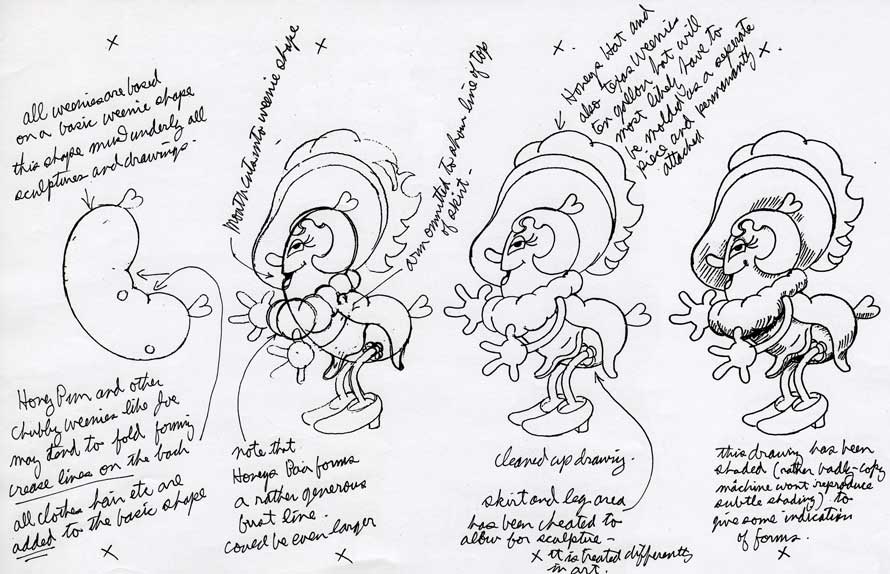 all weenies are based
on a basic weenie shape
this shape must underly all
sculptures and drawings.
Mouth cuts into weenie shape
arm ommitted to show line of top
of skirt -
Honeys Hat and
also Texas Weenies
ten gallon hat will
most likely have to
be molded as a seperate
piece and permanently
attached
Honey Bun and other
chubby weenies like Joe
may tend to fold forming
crease lines on the back
all clothes hair etc are
added to the basic shape
note that
Honeys Pair forms
a rather generous
bust line.
could be even larger
cleaned up drawing.
skirt and leg area
has been cheated to
allow for sculpture -
it is treated differently
in art.
this drawing has been
shaded (rather badly - copy
machine wont reproduce
subtle shading) to
give some indication
of forms.